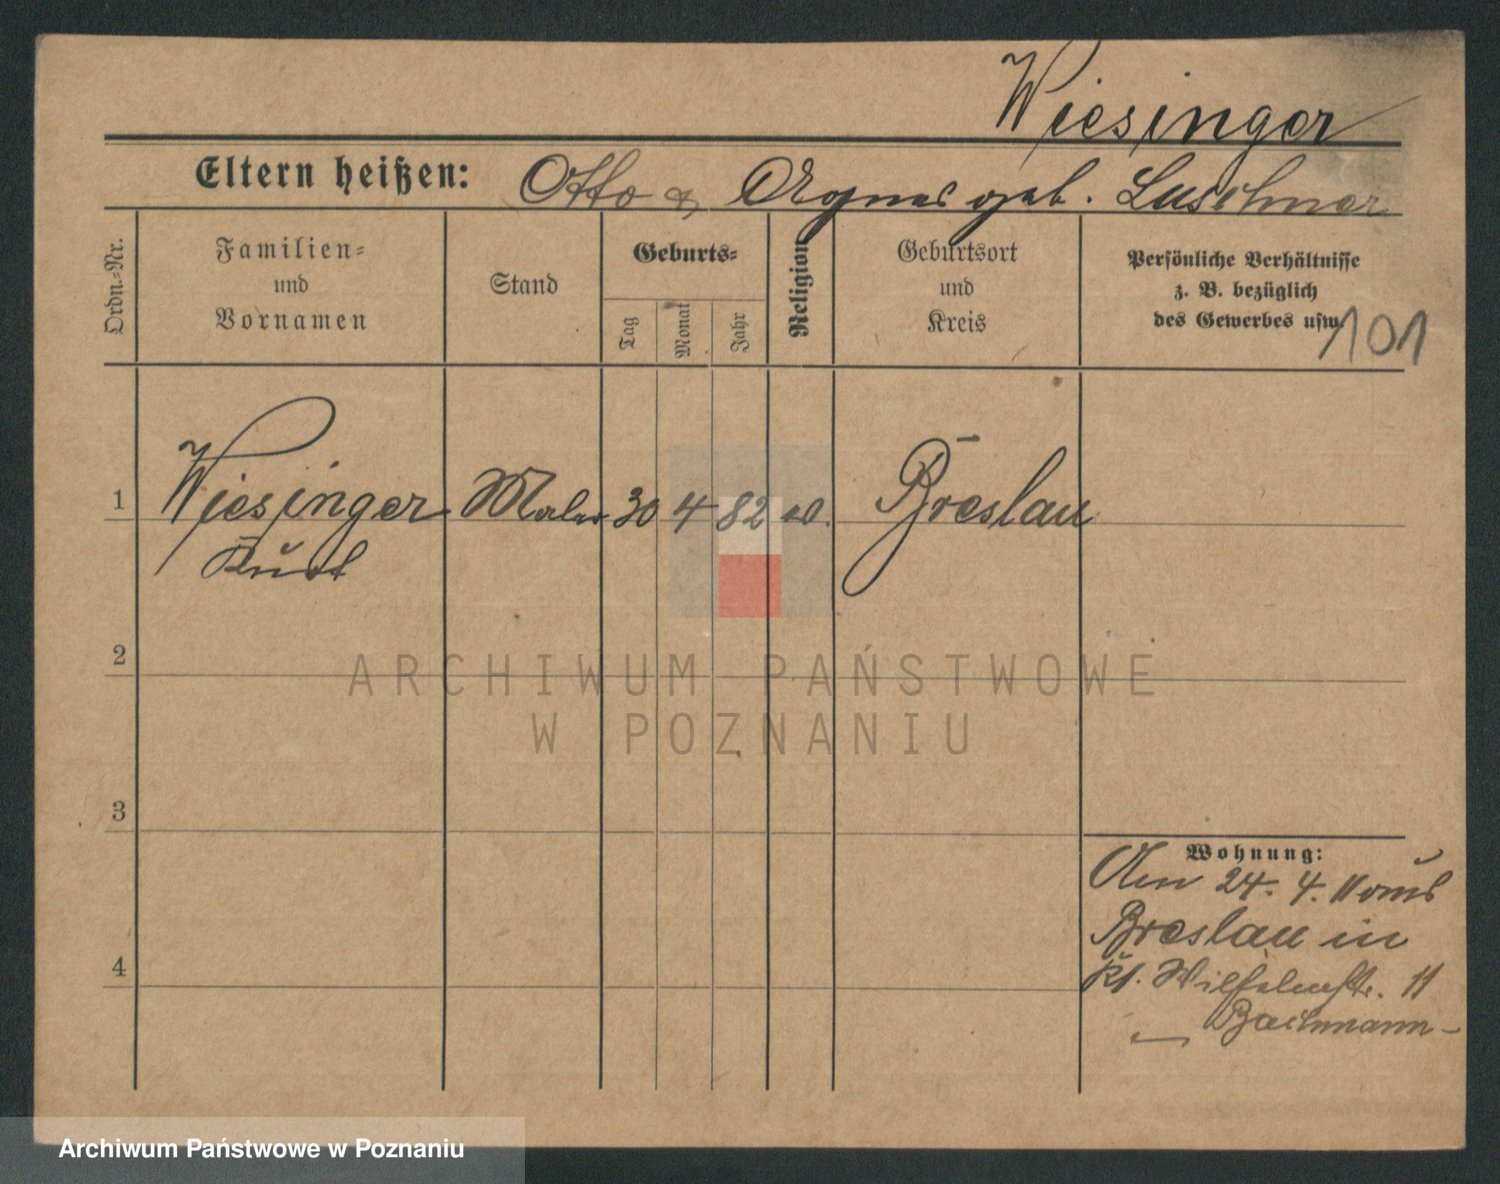 Wiesinger
Eltern heißen: Otto & Agnes geb.
Ordn.-Nr.
Familien-
und
Vornamen
Stand
Geburts-
Tag
Monat
Jahr
Religion
Geburtsort
und
Kreis
Persönliche Verhältnisse
z. B. bezüglich
des Gewerbes usw.
101
1 Wiesinger Maler 30 4 82 Breslau
Kurt
2
3
4
Wohnung:
Am 24. 4. 11 aus
Breslau in
Kl. Wilhelmstr. 11
Bachmann
ARCHIWUM PAŃSTWOWE
W POZNANIU
Archiwum Państwowe w Poznaniu